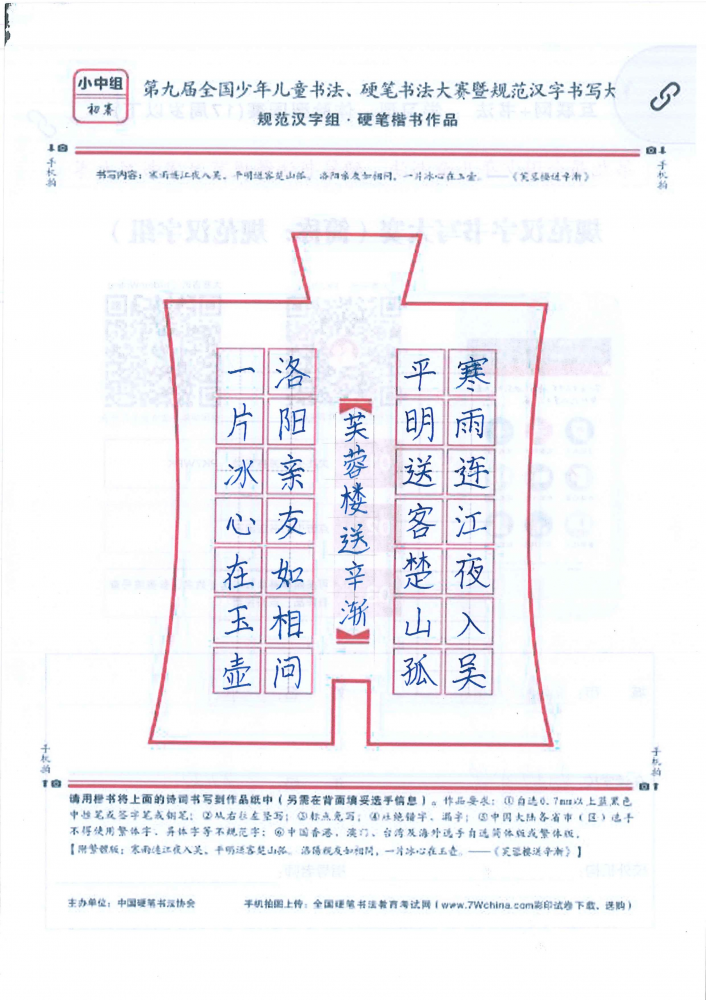 小中组
初赛
第九届全国少年儿童书法、硬笔书法大赛暨规范汉字书写大
规范汉字组·硬笔楷书作品
手机拍
手机拍
书写内容：寒雨连江夜入吴，平明送客楚山孤。洛阳亲友如相问，一片冰心在玉壶。——《芙蓉楼送辛渐》
寒雨连江夜入吴
平明送客楚山孤
芙蓉楼送辛渐
洛阳亲友如相问
一片冰心在玉壶
手机拍
手机拍
请用楷书将上面的诗词书写到作品纸中（另需在背面填妥选手信息）。作品要求：①自选0.7mm以上蓝黑色
中性笔或签字笔或钢笔；②从右往左竖写；③标点免写；④杜绝错字、漏字；⑤中国大陆各省市（区）选手
不得使用繁体字、异体字等不规范字；⑥中国香港、澳门、台湾及海外选手自选简体版或繁体版。
【附繁體版：寒雨連江夜入吴，平明送客楚山孤。洛陽親友如相問，一片冰心在玉壺。——《芙蓉樓送辛漸》】
主办单位：中国硬笔书法协会
手机拍图上传：全国硬笔书法教育考试网（www.7Wchina.com彩印试卷下载、选购）